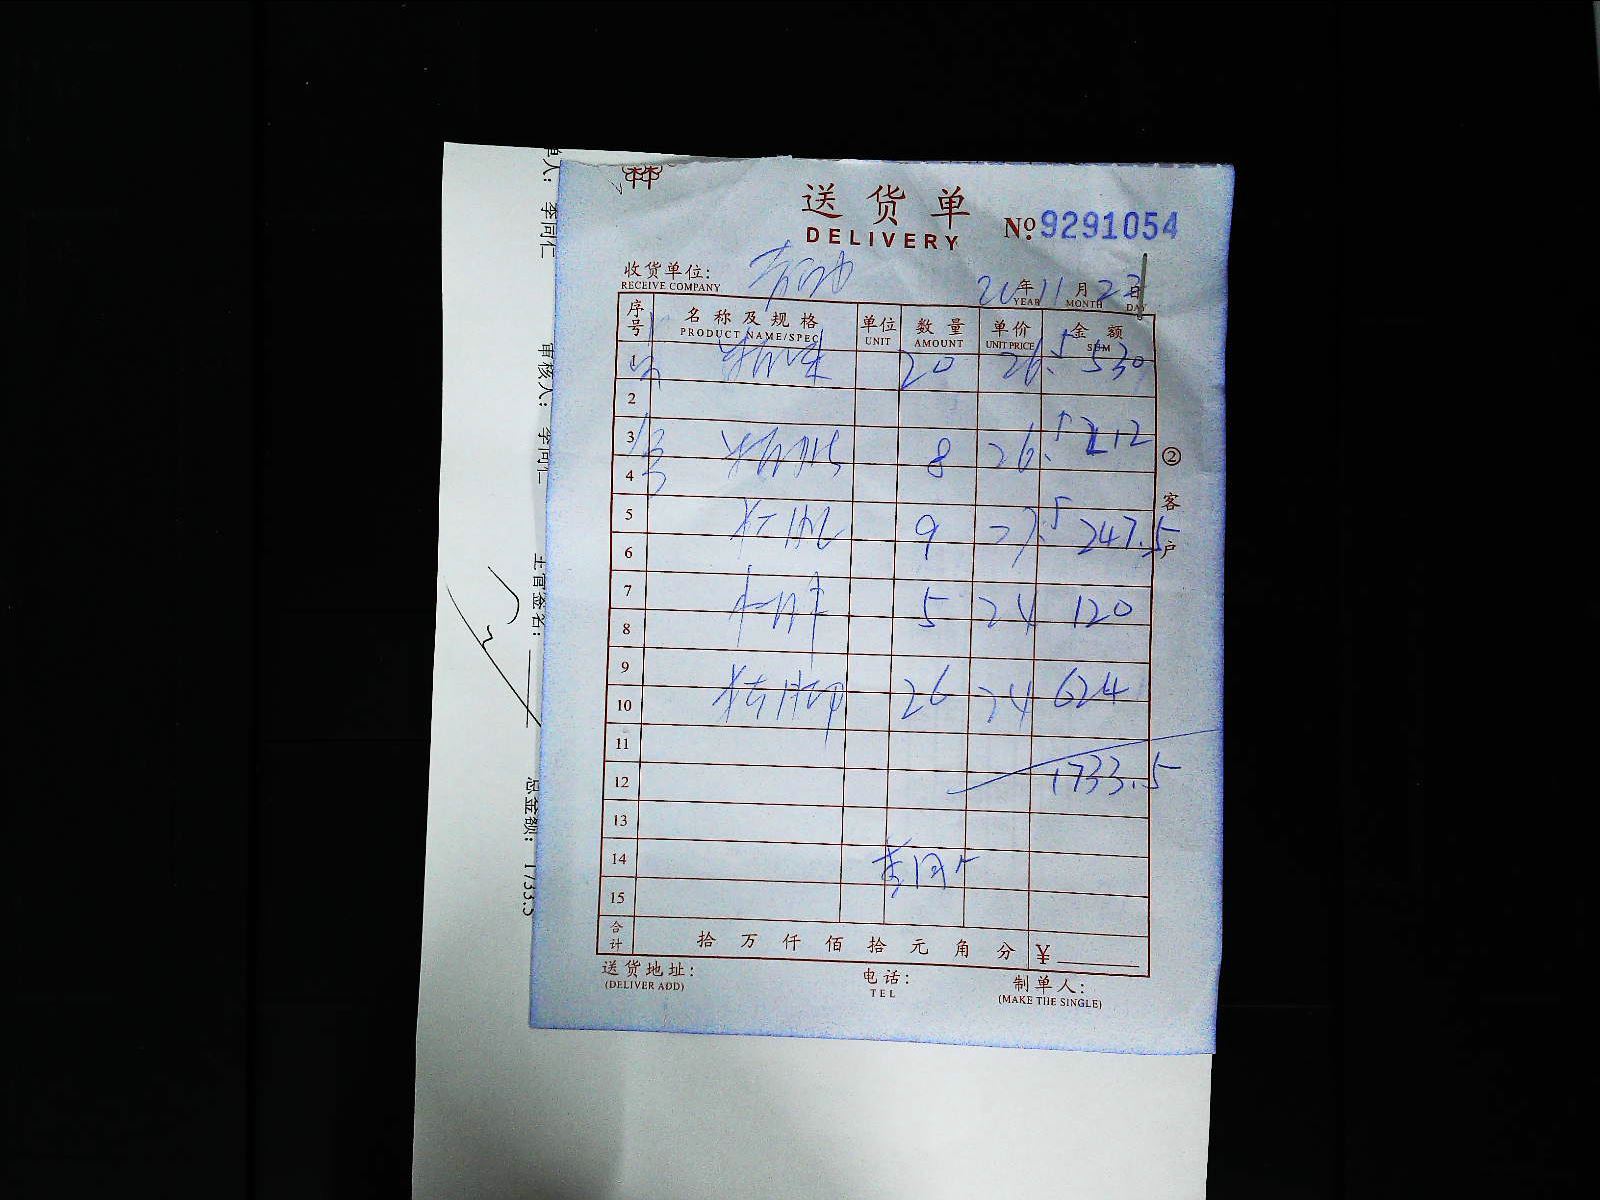 送货单
DELIVERY
No 9291054
收货单位:
RECEIVE COMPANY
20 年 11 月 23 日
YEAR MONTH DAY
序号 名称及规格 单位 数量 单价 金额
PRODUCT NAME/SPEC UNIT AMOUNT UNIT PRICE SUM
1 20 26.5 530
2
3 8 26.5 212
4
5 9 27.5 247.5
6
7 5 24 120
8
9
10 26 24 624
11
12 1733.5
13
14 李同仁
15
合计 拾 万 仟 佰 拾 元 角 分 ¥
送货地址: 电话: 制单人:
(DELIVER ADD) TEL (MAKE THE SINGLE)
② 客户
单人: 李同仁
审核人: 李同仁
主管签名:
总金额: 1733.5